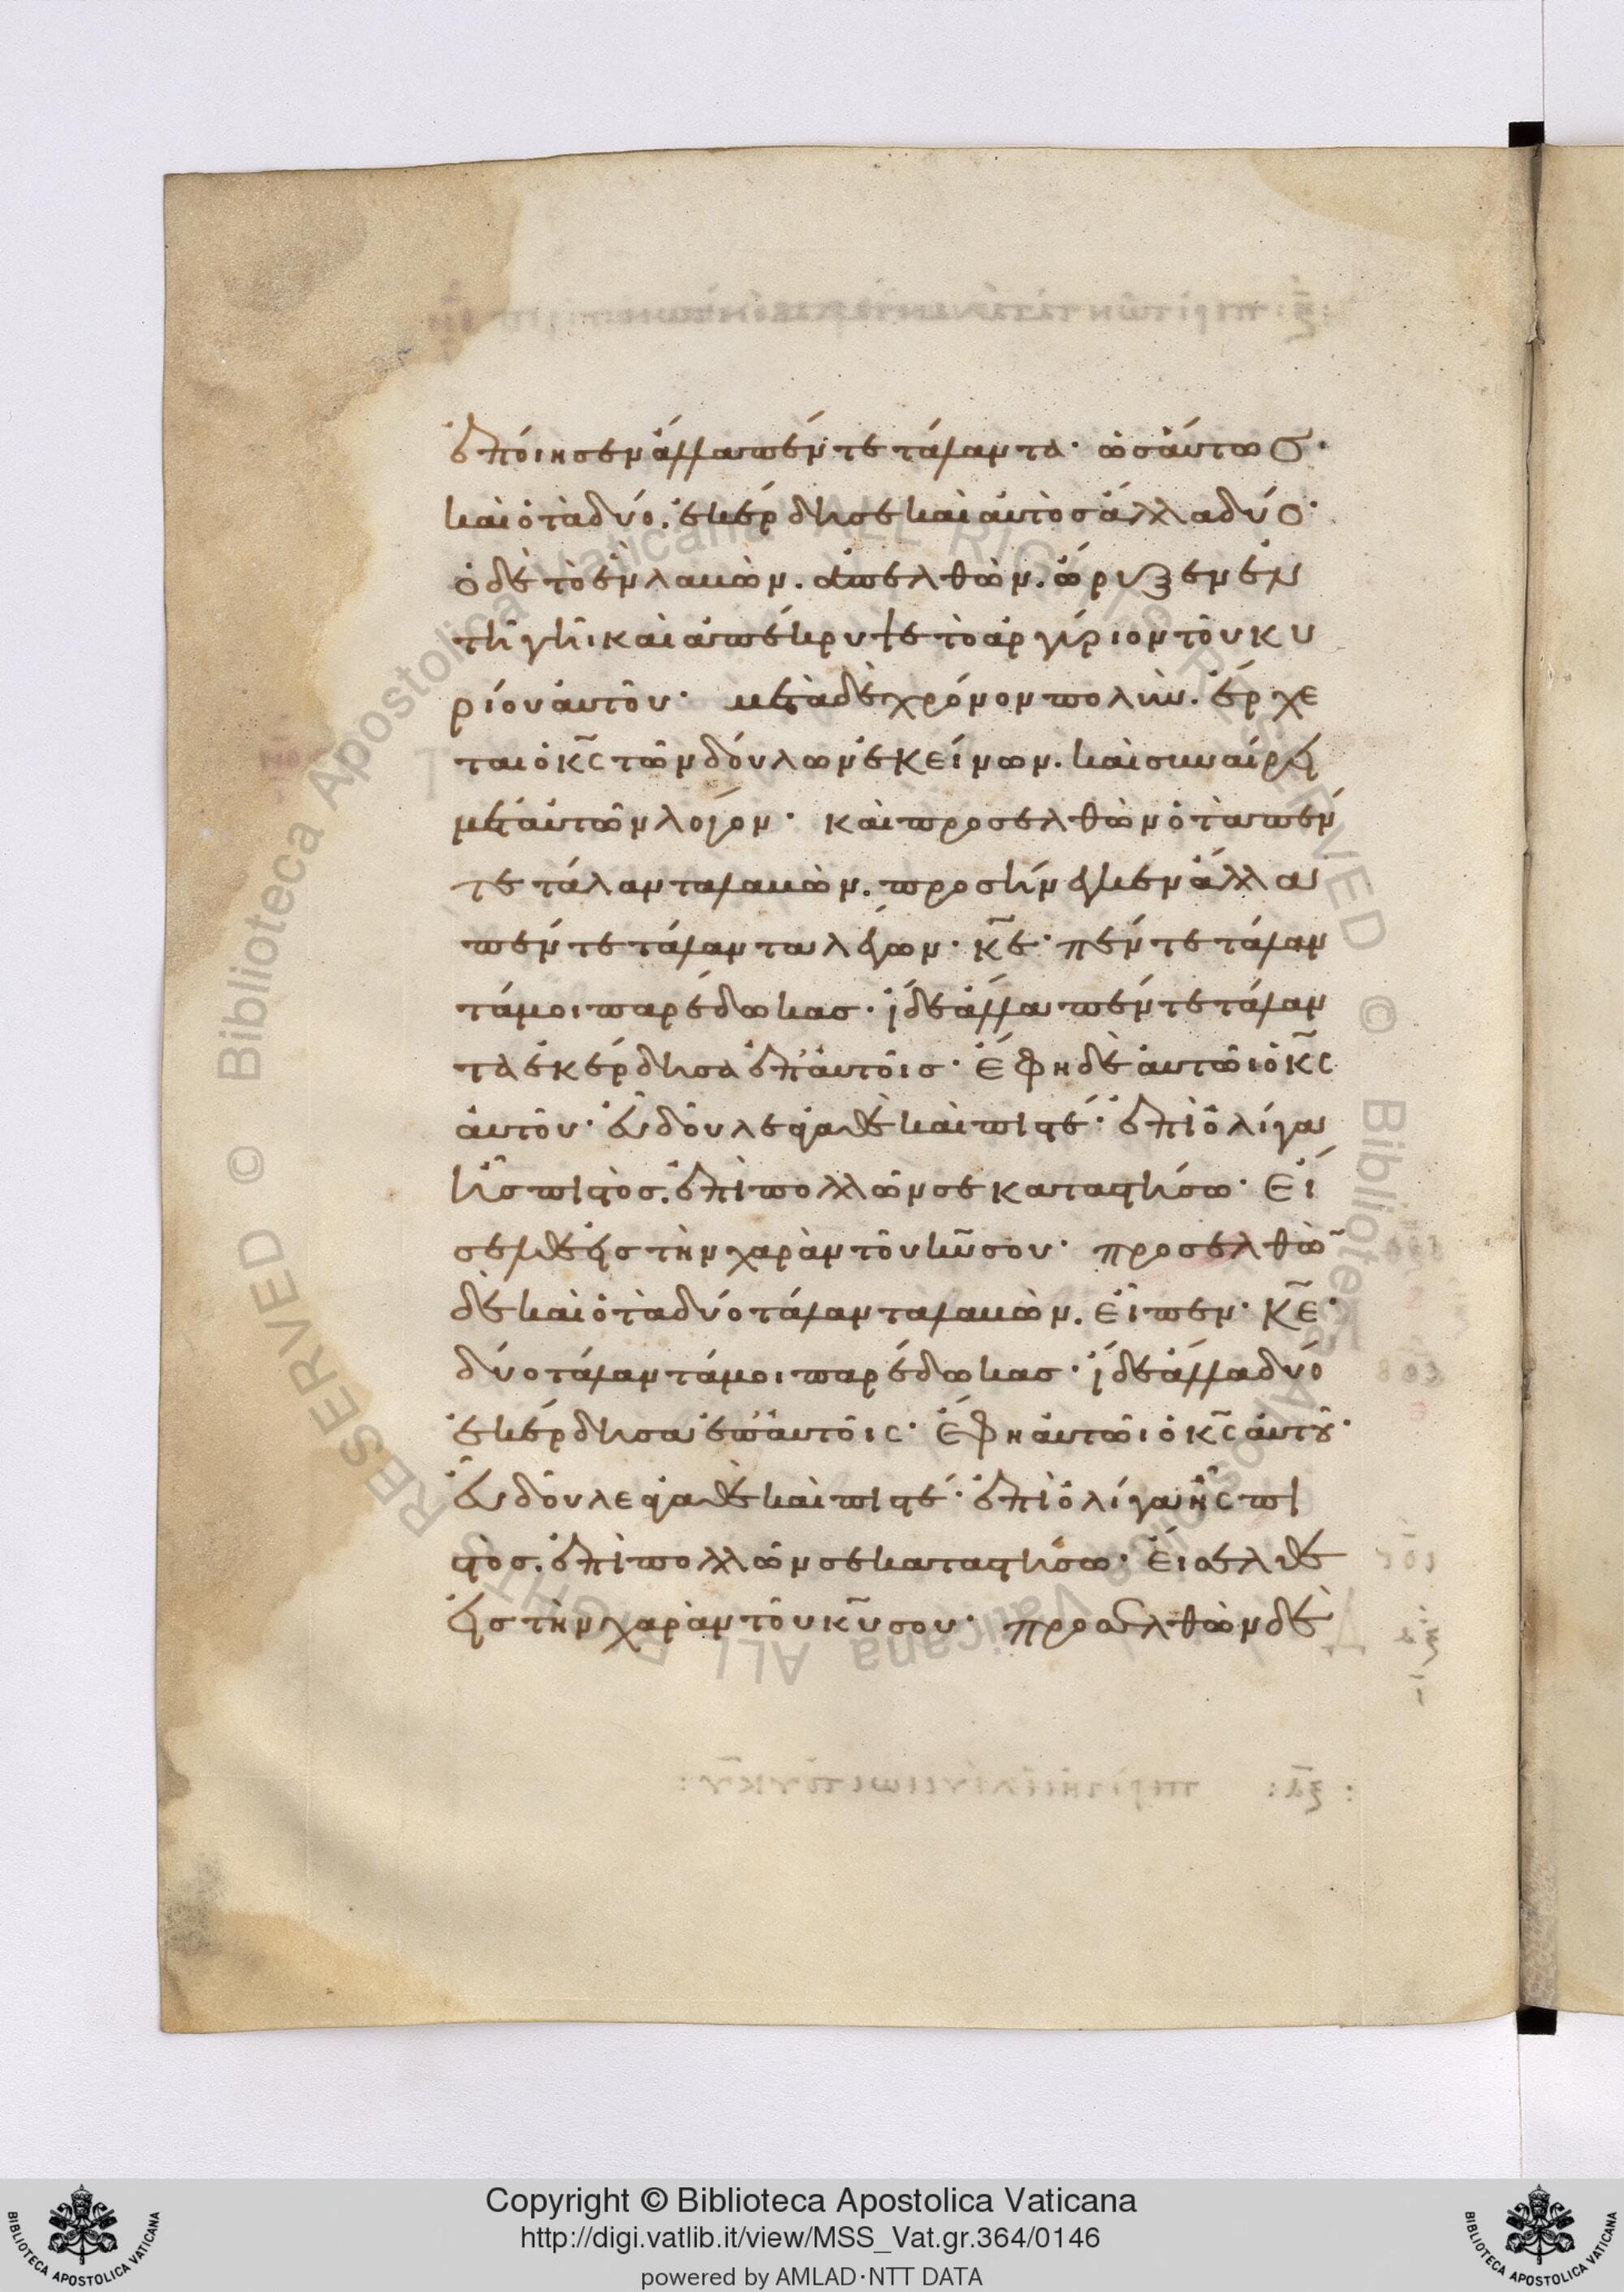 ἐποίησεν ἄλλα πέντε τάλαντα· ὡσάυτως·
καὶ ὁ τὰ δύο. ἐκέρδησε καὶ ἀυτὸς ἄλλα δύο·
ὁ δὲ τὸ ἓν λαβὼν. ἀπελθὼν. ὤρυξεν ἐν
τῆ γῆι καὶ ἀπέκρυψε τὸ ἀργύριον τοῦ κυ
ρίου ἀυτοῦ· μετὰ δὲ χρόνον πολὺν. ἔρχε
ται ὁ κ̅ς τῶν δούλων ἐκείνων. καὶ συναίρει
μετ' ἀυτῶν λόγον· καὶ προσελθὼν ὁ τὰ πέν
τε τάλαντα λαβὼν. προσήνεγκεν ἄλλα
πέντε τάλαντα λέγων· κ̅ε· πέντε τάλαν
τά μοι παρέδωκας· ἴδε ἄλλα πέντε τάλαν
τα ἐκέρδησα ἐπ' ἀυτοῖς· ἔφη δὲ ἀυτῶι ὁ κ̅ς
ἀυτοῦ· εὖ δοῦλε ἀγαθὲ καὶ πιστέ· ἐπὶ ὀλίγα
ἦς πιστὸς. ἐπὶ πολλῶν σε καταστήσω· εἴ
σελθε εἰς τὴν χαρὰν τοῦ κ̅υ σου· προσελθὼ̅
δὲ καὶ ὁ τὰ δύο τάλαντα λαβὼν. εἶπεν· κ̅ε·
δύο τάλαντά μοι παρέδωκας· ἴδε ἄλλα δύο
ἐκέρδησα ἐπ' ἀυτοῖς· ἔφη ἀυτῶι ὁ κ̅ς ἀυτοῦ·
εὖ δοῦλε ἀγαθὲ καὶ πιστέ· ἐπὶ ὀλίγα ἦς πι
στὸς. ἐπὶ πολλῶν σε καταστήσω· εἴσελθε
εἰς τὴν χαρὰν τοῦ κ̅υ σου· προσελθὼν δὲ
Copyright © Biblioteca Apostolica Vaticana
http://digi.vatlib.it/view/MSS_Vat.gr.364/0146
powered by AMLAD·NTT DATA